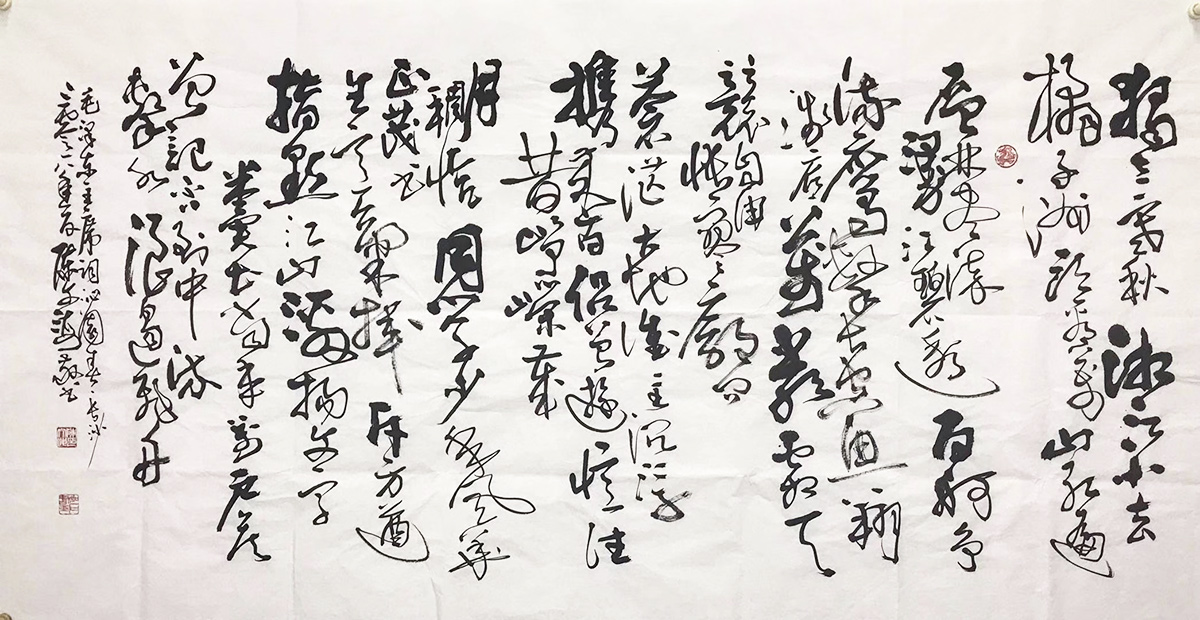 獨立寒秋湘江北去
橘子洲頭看万山红遍
层林尽染
漫江碧透百舸争
流鹰擊长空鱼翔
浅底萬类霜天
競自由
怅寥廓问
苍茫大地谁主沉浮
携来百侣曾遊忆往
昔峥嵘歲
月
稠恰同学少年风华
正茂书
生意氣挥斥方遒
指點江山激揚文字
粪土当年万户侯
曾记否到中流
擊水浪遏飛舟
毛泽东主席词沁園春长沙
二零一八年夏陈海敬书